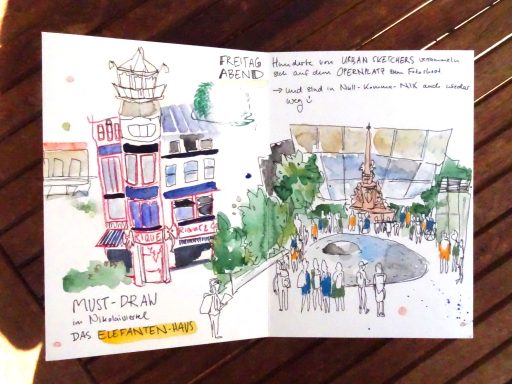 FREITAG
ABEND
Hunderte von URBAN SKETCHERS versammeln
sich auf dem OPERNPLATZ zum Fotoshoot
→ und sind in Null-Komma-NIX auch wieder
weg
RIQUE
RIQUET & Co
MUST-DRAW
im Nikolaiviertel
DAS ELEFANTEN-HAUS